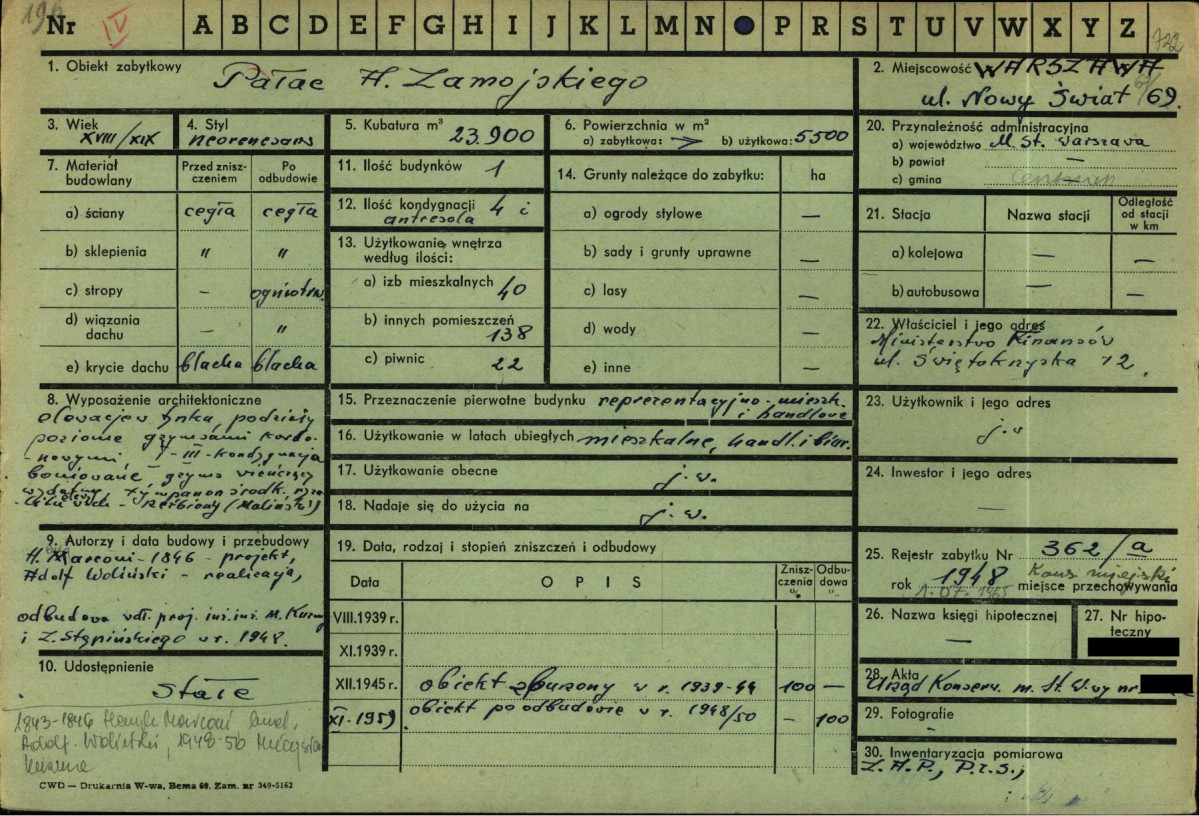 196
Nr IV A B C D E F G H I J K L M N P R S T U V W X Y Z 732
1. Obiekt zabytkowy Pałac H. Zamojskiego
2. Miejscowość WARSZAWA
ul. Nowy Świat 69.
3. Wiek XVIII/XIX
4. Styl neorenesans
5. Kubatura m³ 23.900
6. Powierzchnia w m²
a) zabytkowa: b) użytkowa: 5500
7. Materiał budowlany
Przed zniszczeniem
Po odbudowie
a) ściany cegła cegła
b) sklepienia " "
c) stropy –
d) wiązania dachu – "
e) krycie dachu blacha blacha
8. Wyposażenie architektoniczne
poziome gzymsami kordo-
nowymi, I-III-kondygnacja
boniowane, gzyms wieńczący
9. Autorzy i data budowy i przebudowy
H. Marconi - 1846 - projekt,
Adolf Woliński - realizacja,
odbudowa wdł. proj. inż. inż. M. Kuzmy
i Z. Stępińskiego w r. 1948.
10. Udostępnienie
Stałe
1843-1846 Henryk Marconi bud.
Adolf. Woliński, 1948-50 Mieczysław
Kuzma
CWD — Drukarnia W-wa, Bema 60. Zam. nr 349-5162
11. Ilość budynków 1
12. Ilość kondygnacji 4 i
antresola
13. Użytkowanie wnętrza
według ilości:
a) izb mieszkalnych 40
b) innych pomieszczeń
138
c) piwnic 22
14. Grunty należące do zabytku: ha
a) ogrody stylowe —
b) sady i grunty uprawne —
c) lasy —
d) wody —
e) inne —
15. Przeznaczenie pierwotne budynku reprezentacyjno-mieszk.
i handlowe
16. Użytkowanie w latach ubiegłych mieszkalne, handl. i biur.
17. Użytkowanie obecne j. w.
18. Nadaje się do użycia na j. w.
19. Data, rodzaj i stopień zniszczeń i odbudowy
Data OPIS Zniszczenia % Odbudowa %
VIII.1939 r.
XI.1939 r.
XII.1945 r. obiekt zburzony w r. 1939-44 100 —
XI.1959 obiekt po odbudowie w r. 1948/50 – 100
20. Przynależność administracyjna
a) województwo M. St. Warszawa
b) powiat —
c) gmina
21. Stacja Nazwa stacji Odległość od stacji w km
a) kolejowa — —
b) autobusowa — —
22. Właściciel i jego adres
Ministerstwo Finansów
ul. Świętokrzyska 12.
23. Użytkownik i jego adres
j. w
24. Inwestor i jego adres
—
25. Rejestr zabytku Nr 362/a
rok 1948 Kons. miejski
1.07.1965 miejsce przechowywania
26. Nazwa księgi hipotecznej
—
27. Nr hipoteczny
28. Akta
Urząd Konserw. m. St. W-wy nr.
29. Fotografie
–
30. Inwentaryzacja pomiarowa
Z.A.P., P.r.s.,